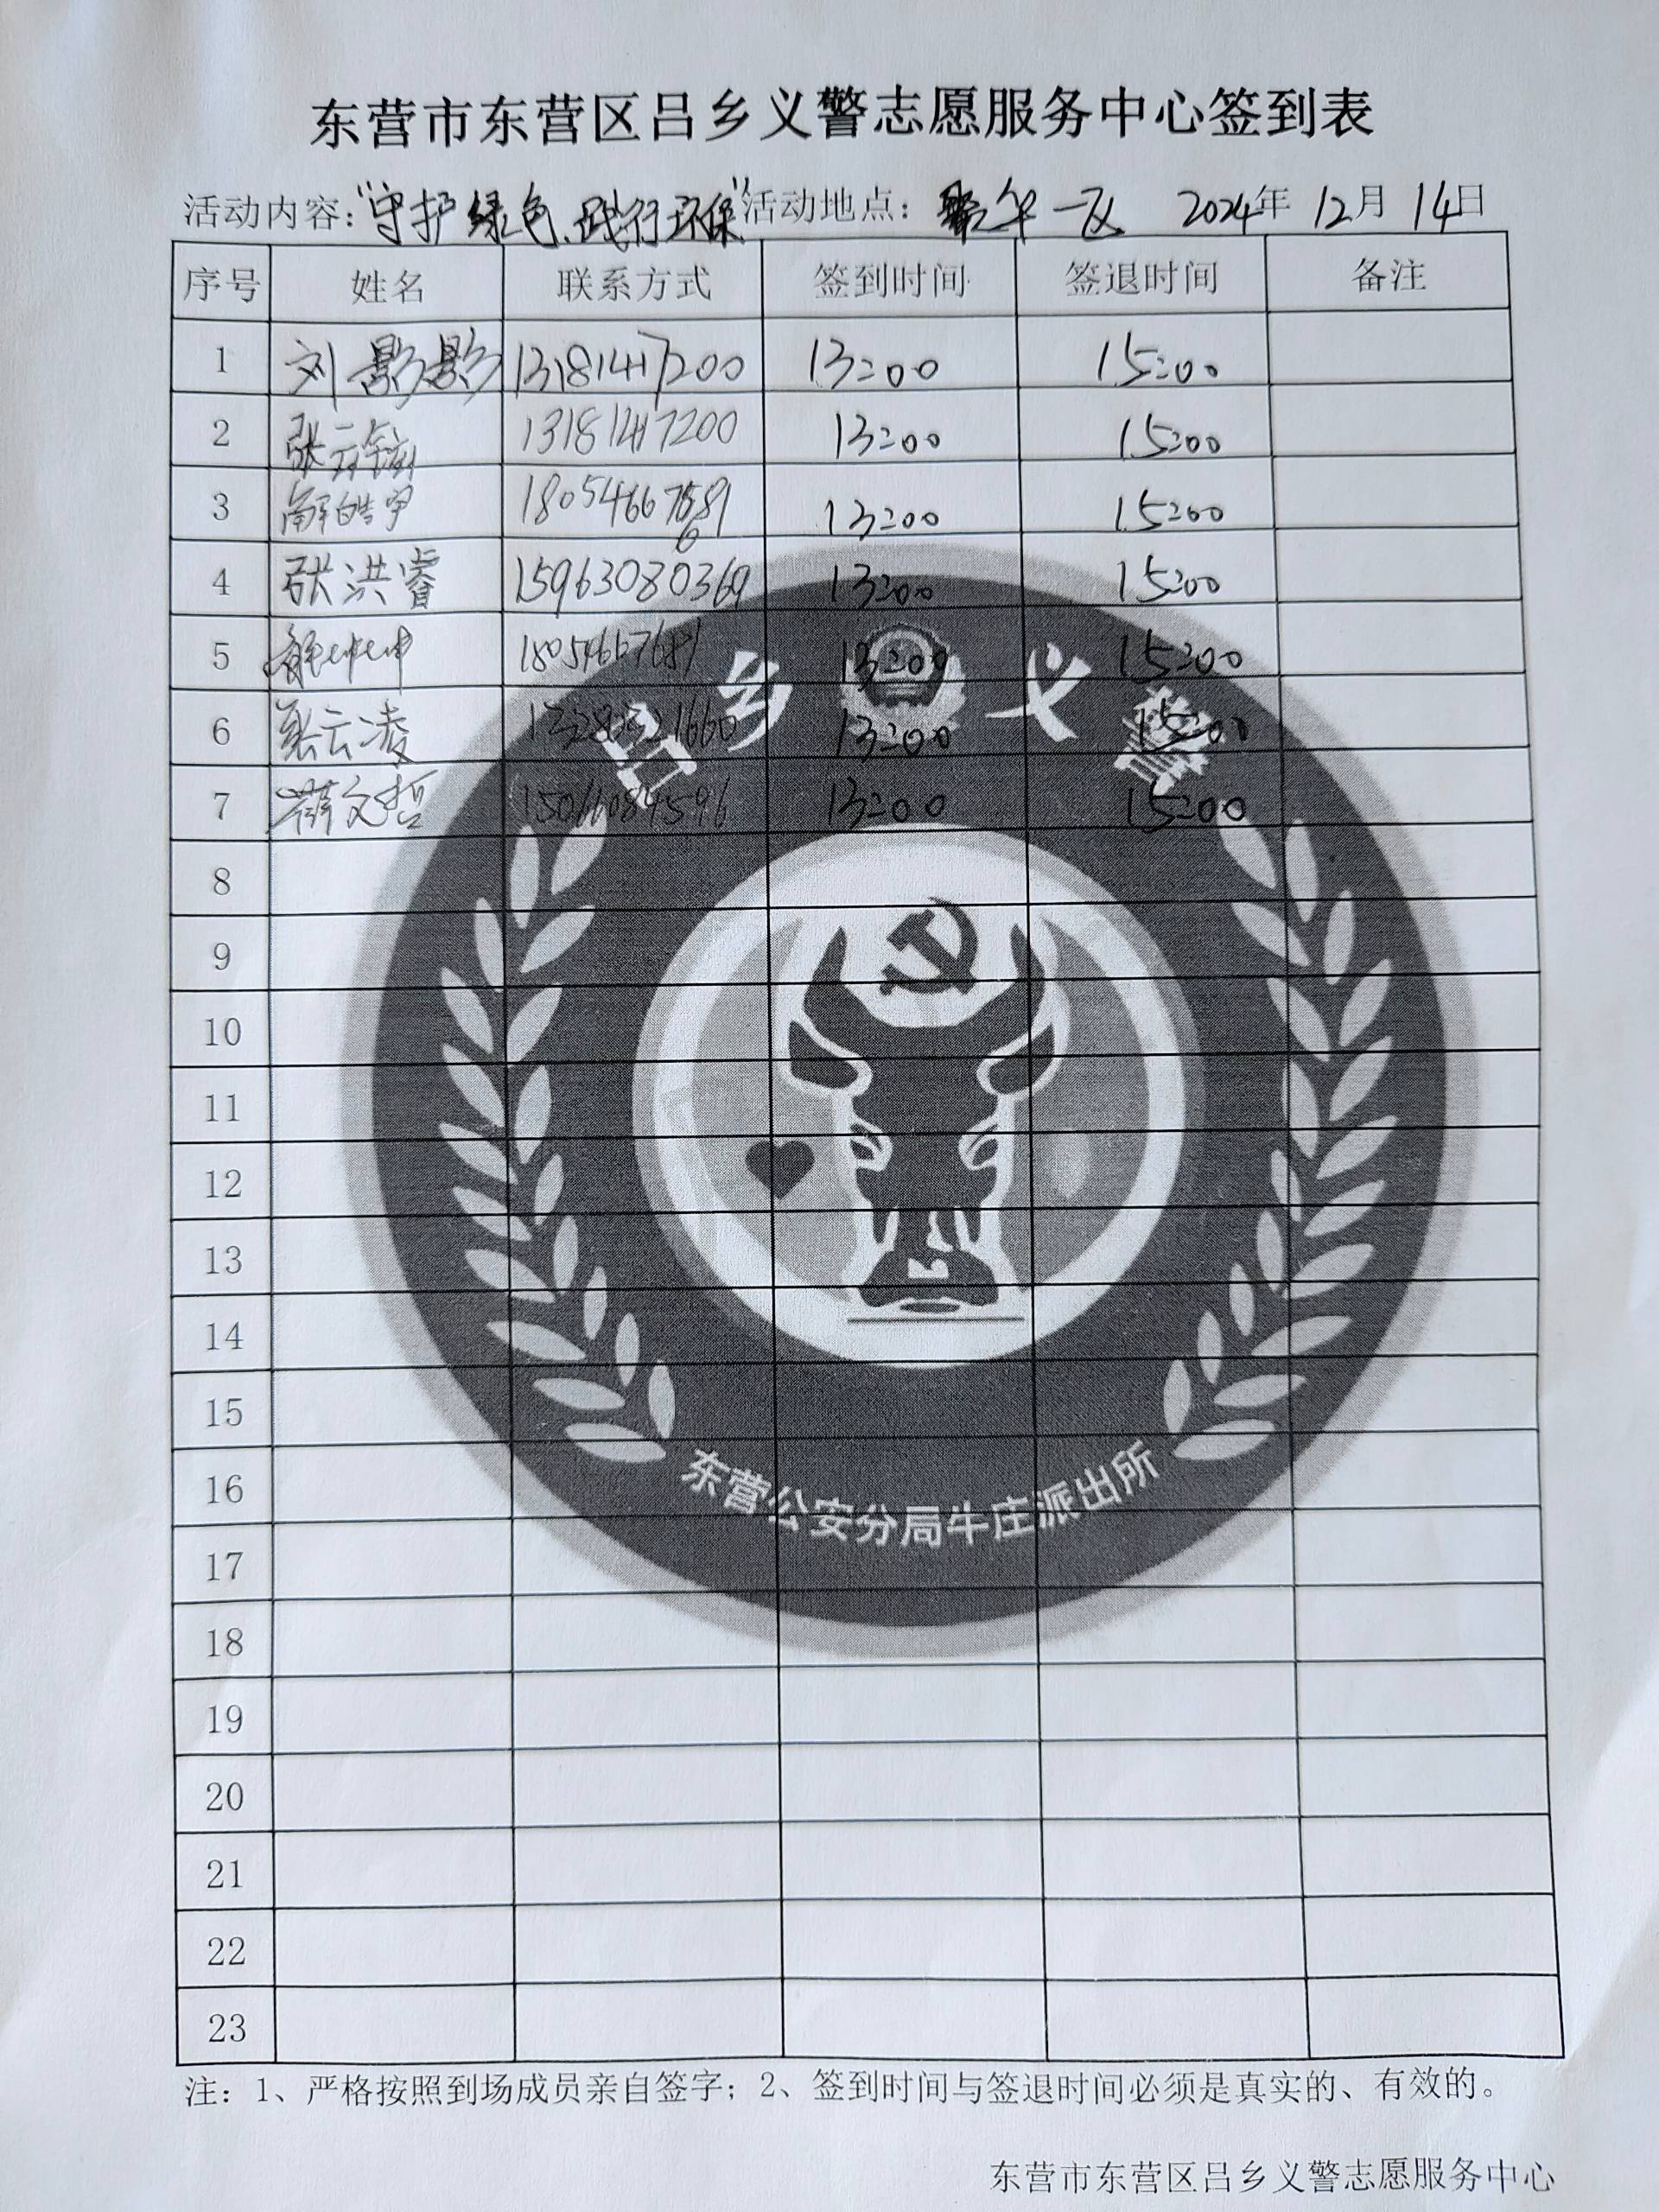 东营市东营区吕乡义警志愿服务中心签到表
活动内容:“守护绿色、践行环保”活动地点: 一区 2024年 12月 14日
序号 姓名 联系方式 签到时间 签退时间 备注
1 刘影影 13181417200 13:00 15:00
2 张云 13181417200 13:00 15:00
3 13:00 15:00
4 张洪睿 15963080369 13:00 15:00
5 13:00 15:00
6 张云凌 13:00 15:00
7 薛文哲 15066084596 13:00 15:00
8
9
10
11
12
13
14
15
16
17
18
19
20
21
22
23
吕乡义警
东营公安分局牛庄派出所
注:1、严格按照到场成员亲自签字;2、签到时间与签退时间必须是真实的、有效的。
东营市东营区吕乡义警志愿服务中心